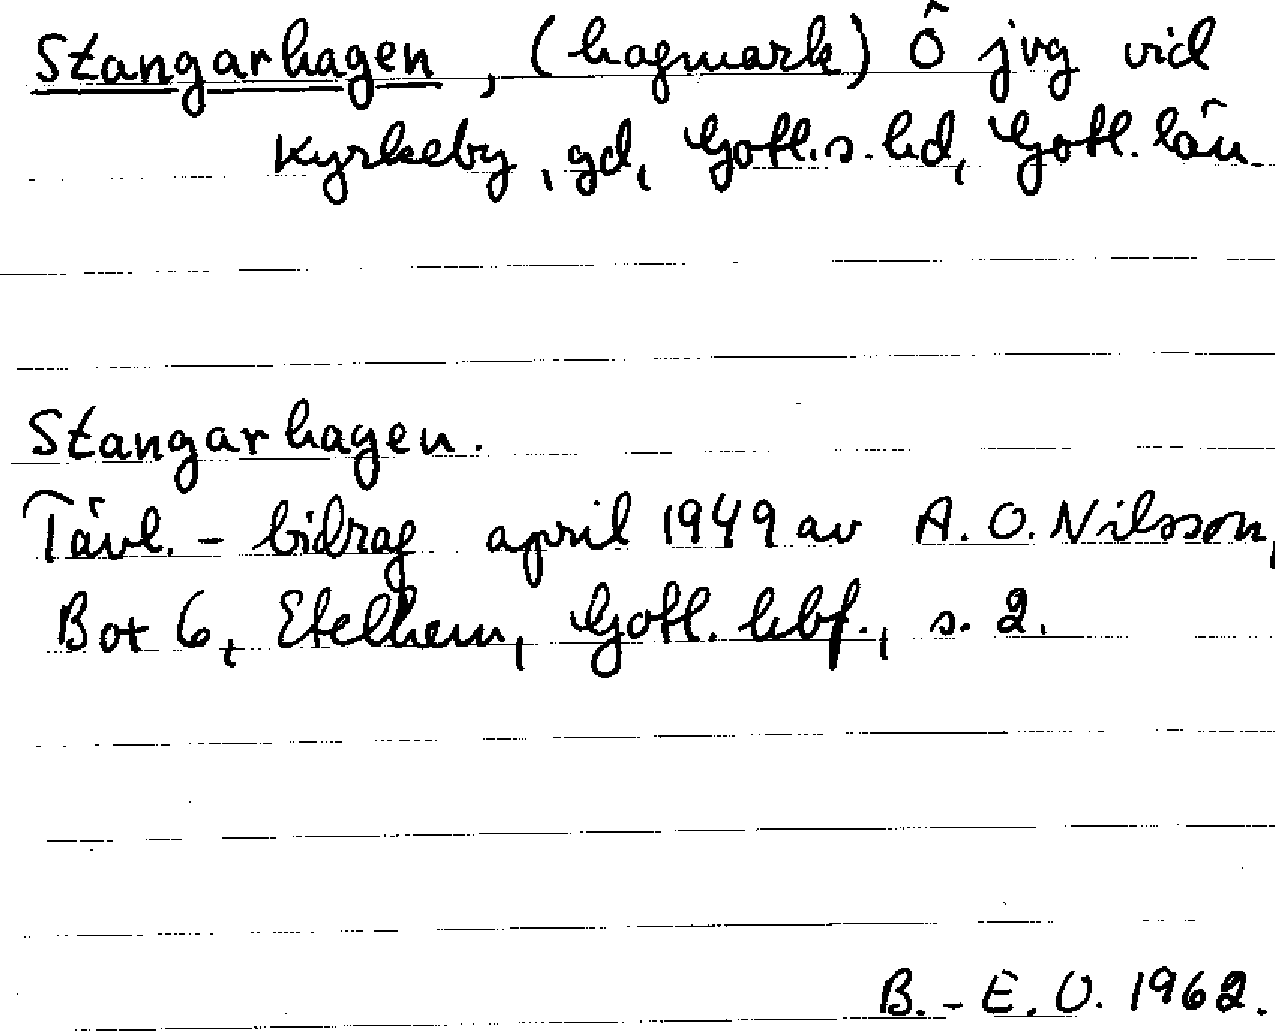 Stangarhagen, (hagmark) Ö jvg vid
Kyrkeby, gd, Gotl. s. hd, Gotl. län.
Stangarhagen.
Tävl. - bidrag april 1949 av A. O. Nilsson,
Box 6, Etelhem, Gotl. hbf., s. 2.
B. - E. O. 1962.